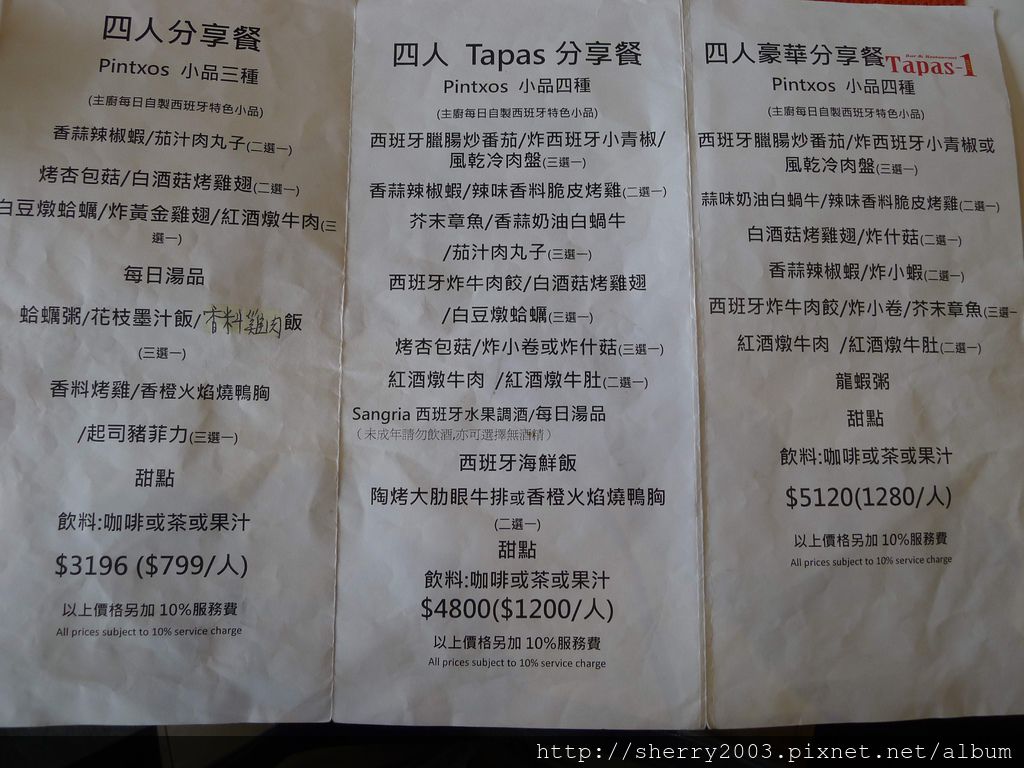 四人分享餐
Pintxos 小品三種
(主廚每日自製西班牙特色小品)
香蒜辣椒蝦/茄汁肉丸子(二選一)
烤杏包菇/白酒菇烤雞翅(二選一)
白豆燉蛤蠣/炸黃金雞翅/紅酒燉牛肉(三
選一)
每日湯品
蛤蠣粥/花枝墨汁飯/香料雞肉飯
(三選一)
香料烤雞/香橙火焰燒鴨胸
/起司豬菲力(三選一)
甜點
飲料:咖啡或茶或果汁
$3196 ($799/人)
以上價格另加 10%服務費
All prices subject to 10% service charge
四人 Tapas 分享餐
Pintxos 小品四種
(主廚每日自製西班牙特色小品)
西班牙臘腸炒番茄/炸西班牙小青椒/
風乾冷肉盤(三選一)
香蒜辣椒蝦/辣味香料脆皮烤雞(二選一)
芥末章魚/香蒜奶油白蝸牛
/茄汁肉丸子(三選一)
西班牙炸牛肉餃/白酒菇烤雞翅
/白豆燉蛤蠣(三選一)
烤杏包菇/炸小卷或炸什菇(三選一)
紅酒燉牛肉 /紅酒燉牛肚(二選一)
Sangria 西班牙水果調酒/每日湯品
(未成年請勿飲酒,亦可選擇無酒精)
西班牙海鮮飯
陶烤大肋眼牛排或香橙火焰燒鴨胸
(二選一)
甜點
飲料:咖啡或茶或果汁
$4800($1200/人)
以上價格另加 10%服務費
All prices subject to 10% service charge
四人豪華分享餐
Bar & Restaurant
Tapas-1
Pintxos 小品四種
(主廚每日自製西班牙特色小品)
西班牙臘腸炒番茄/炸西班牙小青椒或
風乾冷肉盤(三選一)
蒜味奶油白蝸牛/辣味香料脆皮烤雞(二選一)
白酒菇烤雞翅/炸什菇(二選一)
香蒜辣椒蝦/炸小蝦(二選一)
西班牙炸牛肉餃/炸小卷/芥末章魚(三選一
紅酒燉牛肉 /紅酒燉牛肚(二選一)
龍蝦粥
甜點
飲料:咖啡或茶或果汁
$5120(1280/人)
以上價格另加 10%服務費
All prices subject to 10% service charge
http://sherry2003.pixnet.net/album